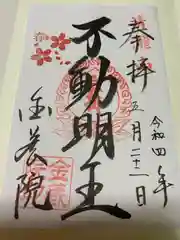 奉拝
令和四年
五月二十一日
不動明王
金蔵院